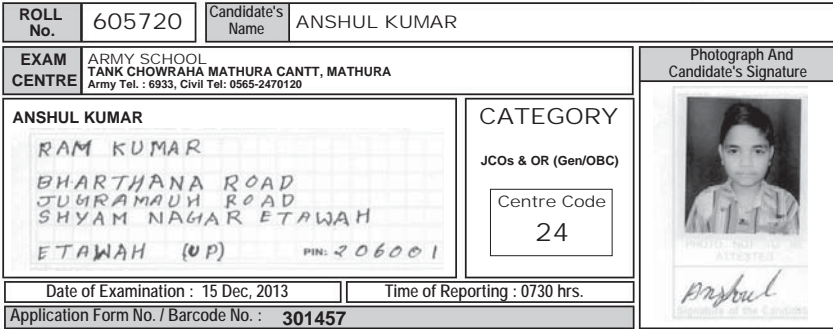 ROLL No. 605720 Candidate's Name ANSHUL KUMAR
EXAM CENTRE
ARMY SCHOOL
TANK CHOWRAHA MATHURA CANTT, MATHURA
Army Tel. : 6933, Civil Tel: 0565-2470120
Photograph And
Candidate's Signature
ANSHUL KUMAR
RAM KUMAR
BHARTHANA ROAD
JUGRAMAUH ROAD
SHYAM NAGAR ETAWAH
ETAWAH (UP) PIN: 206001
CATEGORY
JCOs & OR (Gen/OBC)
Centre Code
24
PHOTO NOT TO BE
ATTESTED
Anshul
Signature of the Candidate
Date of Examination : 15 Dec, 2013 Time of Reporting : 0730 hrs.
Application Form No. / Barcode No. : 301457